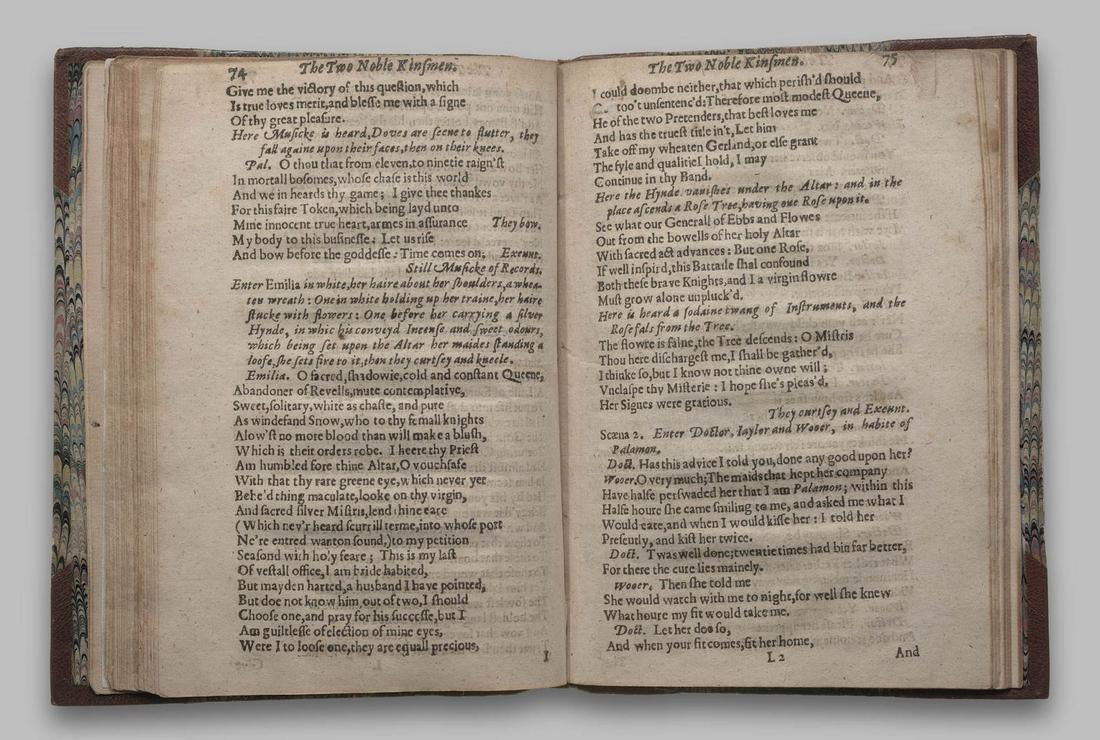 74 The Two Noble Kinſmen.
Give me the victory of this queſtion, which
Is true loves merit, and bleſſe me with a ſigne
Of thy great pleaſure.
Here Muſicke is heard, Doves are ſeene to flutter, they
fall againe upon their faces, then on their knees.
Pal. O thou that from eleven, to ninetie raign'ſt
In mortall boſomes, whoſe chaſe is this world
And we in heards thy game; I give thee thankes
For this faire Token, which being layd unto
Mine innocent true heart, armes in aſſurance They bow.
My body to this buſineſſe: Let us riſe
And bow before the goddeſſe: Time comes on; Exeunt.
Still Muſicke of Records.
Enter Emilia in white, her haire about her ſhoulders, a whea-
ten wreath: One in white holding up her traine, her haire
ſtucke with flowers: One before her carrying a ſilver
Hynde, in whic his conveyd Incenſe and ſweet odours,
which being ſet upon the Altar her maides ſtanding a
looſe, ſhe ſets fire to it, then they curtſey and kneele.
Emilia. O ſacred, ſhadowie, cold and conſtant Queene,
Abandoner of Revells, mute contemplative,
Sweet, ſolitary, white as chaſte, and pure
As windefand Snow, who to thy femall knights
Alow'ſt no more blood than will make a bluſh,
Which is their orders robe. I heere thy Prieſt
Am humbled fore thine Altar, O vouchſafe
With that thy rare greene eye, which never yet
Behe'd thing maculate, looke on thy virgin,
And ſacred ſilver Miſtris, lend thine eare
(Which nev'r heard ſcurrill terme, into whoſe port
Ne're entred wanton ſound,) to my petition
Seaſond with holy feare; This is my laſt
Of veſtall office, I am bride habited,
But mayden harted, a husband I have pointed,
But doe not know him out of two, I ſhould
Chooſe one, and pray for his ſucceſſe, but I
Am guiltleſſe of election of mine eyes,
Were I to looſe one, they are equall precious,
I
The Two Noble Kinſmen. 75
I could doombe neither, that which periſh'd ſhould
too't unſentenc'd: Therefore moſt modeſt Queene,
He of the two Pretenders, that beſt loves me
And has the trueſt title in't, Let him
Take off my wheaten Gerland, or elſe grant
The fyle and qualitie I hold, I may
Continue in thy Band.
Here the Hynde vaniſhes under the Altar: and in the
place aſcends a Roſe Tree, having one Roſe upon it.
See what our Generall of Ebbs and Flowes
Out from the bowells of her holy Altar
With ſacred act advances: But one Roſe,
If well inſpird, this Battaile ſhal confound
Both theſe brave Knights, and I a virgin flowre
Muſt grow alone unpluck'd.
Here is heard a ſodaine twang of Inſtruments, and the
Roſe fals from the Tree.
The flowre is falne, the Tree deſcends: O Miſtris
Thou here diſchargeſt me, I ſhall be gather'd,
I thinke ſo, but I know not thine owne will;
Vnclaſpe thy Miſterie: I hope ſhe's pleas'd,
Her Signes were gratious.
They curtſey and Exeunt.
Scæna 2. Enter Doctor, Iaylor and Wooer, in habite of
Palamon.
Doct. Has this advice I told you, done any good upon her?
Wooer. O very much; The maids that hept her company
Have halfe perſwaded her that I am Palamon; within this
Halfe houre ſhe came ſmiling to me, and asked me what I
Would eate, and when I would kiſſe her: I told her
Preſently, and kiſt her twice.
Doct. Twas well done; twentie times had bin far better,
For there the cure lies mainely.
Wooer. Then ſhe told me
She would watch with me to night, for well ſhe knew
What houre my fit would take me.
Doct. Let her doe ſo,
And when your fit comes, fit her home,
L 2 And